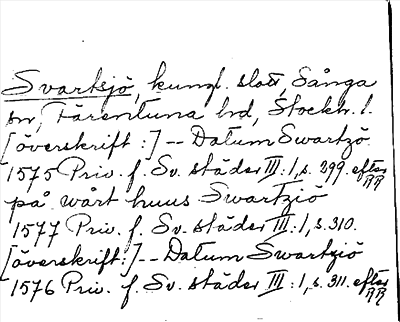 Svartsjö, kungl. slott, Sånga
sn, Färentuna hd, Stockh. l.
[överskrift:]-- Datum Swartzö
1575 Priv. f. Sv. städer III:1, s. 299. efter RR
på wårt huus Swartziö
1577 Priv. f. Sv. städer III:1, s. 310.
[överskrift:]-- Datum Swartziö
1576 Priv. f. Sv. städer III:1, s. 311. efter RR